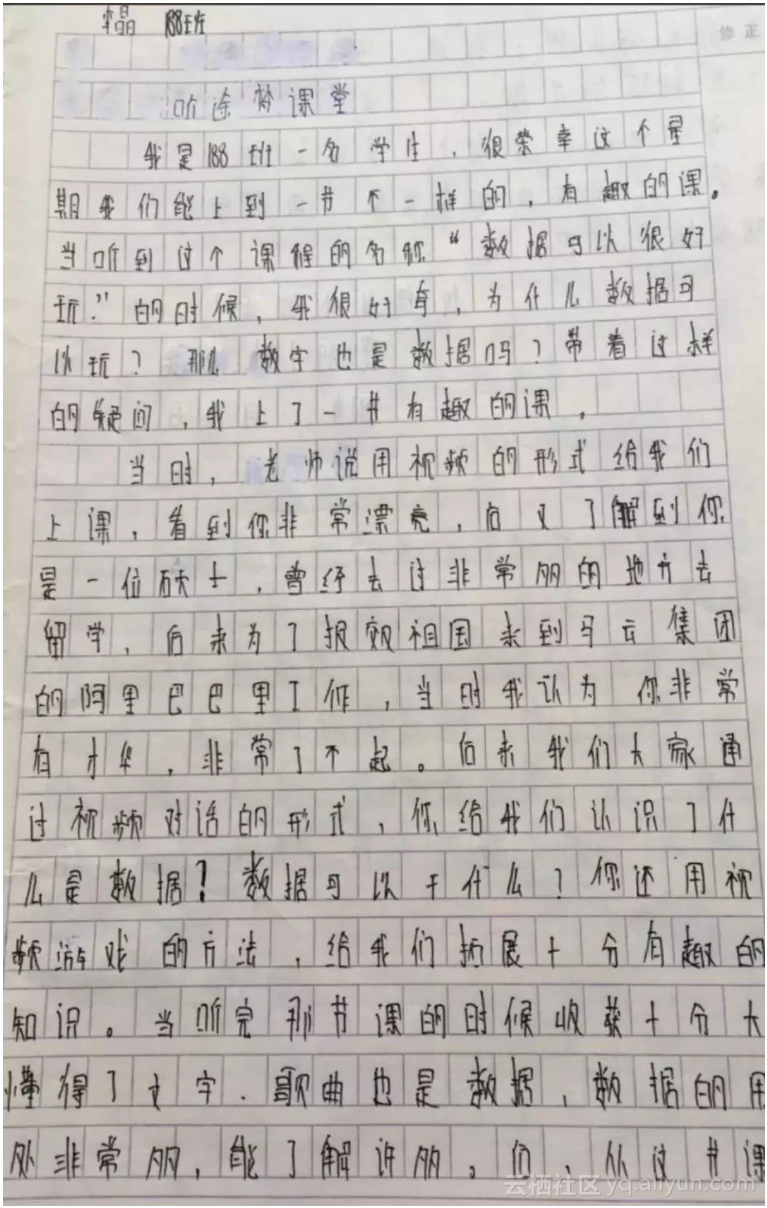 李晶 188班
修正
听途梦课堂
我是188班一名学生，很荣幸这个星
期我们能上到一节不一样的，有趣的课。
当听到这个课程的名称“数据可以很好
玩”的时候，我很好奇，为什么数据可
以玩？那么数字也是数据吗？带着这样
的疑问，我上了一节有趣的课。
当时，老师说用视频的形式给我们
上课，看到你非常漂亮，后又了解到你
是一位硕士，曾经去过非常多的地方去
留学，后来为了报效祖国来到马云集团
的阿里巴巴里工作，当时我认为你非常
有才华，非常了不起。后来我们大家通
过视频对话的形式，你给我们认识了什
么是数据？数据可以干什么？你还用视
频游戏的方法，给我们拓展十分有趣的
知识。当听完那节课的时候收获十分大
懂得了文字．歌曲也是数据，数据的用
处非常多，能了解许多。们，从这节课
云栖社区 yq.aliyun.com